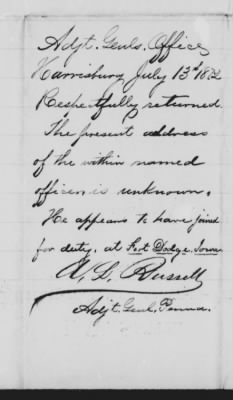 Adjt. Genls. Office
Harrisburg July 13th 1872
Respectfully returned
The present address
of the within named
officer is unknown.
He appears to have joined
for duty, at Fort Dodge, Iowa
A. L. Russell
Adjt. Genl. Penna.